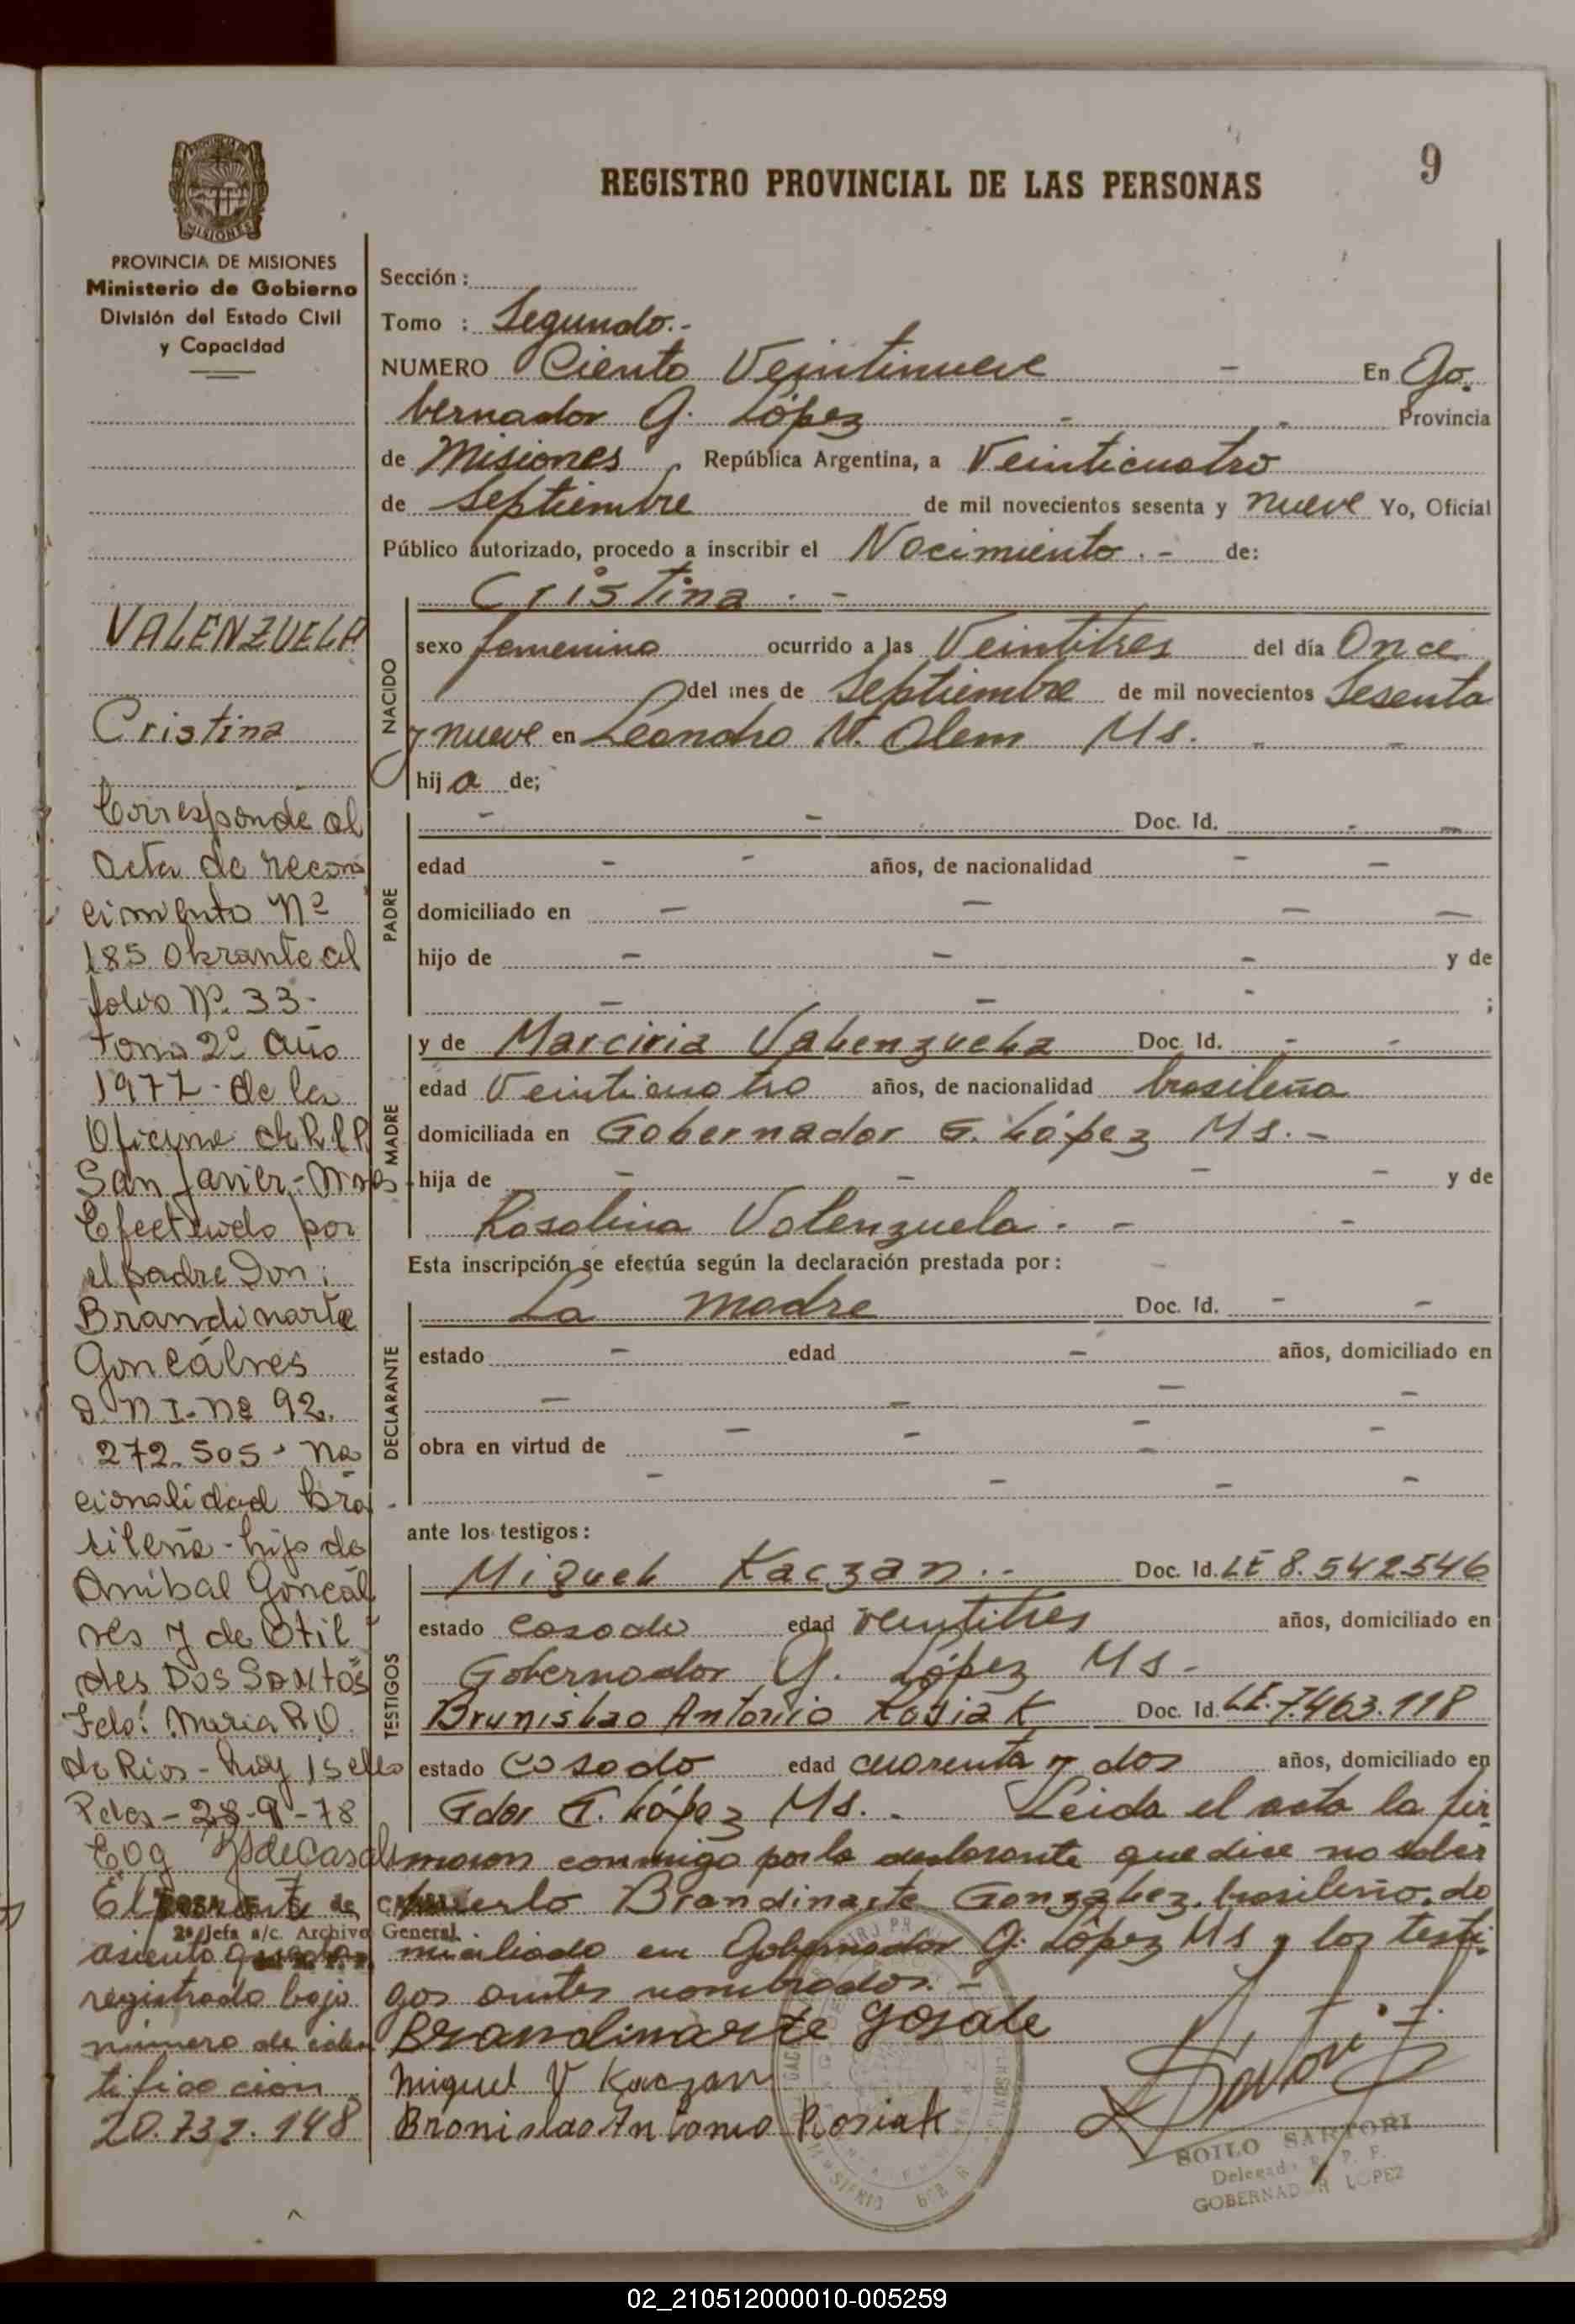 9
REGISTRO PROVINCIAL DE LAS PERSONAS
MISIONES
PROVINCIA DE MISIONES
Ministerio de Gobierno
División del Estado Civil
y Capacidad
VALENZUELA
Cristina
Corresponde al
acta de recono
cimiento Nº
185 obrante al
folio Nº. 33-
tomo 2º año
1977 - de la
Oficina de R.P.P.
San Javier - Mnes
Efectuado por
el padre Don:
Brandinarte
Goncálves
D.N.I. Nº 92.
272.505 - na
cionalidad bra
sileña - hijo de
Aníbal Goncál
ves y de Otil
des Dos Santos
Fdo: Maria R.O.
de Rios - hoy 15 de
Pdas - 28-9-78
El presente
2ª Jefa a/c. Archivo General
asiento queda
registrado bajo
número de iden
tificación
20.731.148
Sección:
Tomo : Segundo.-
NUMERO Ciento Veintinueve - En Go.
bernador G. López - - Provincia
de Misiones, República Argentina, a Veinticuatro
de Septiembre de mil novecientos sesenta y nueve Yo, Oficial
Público autorizado, procedo a inscribir el Nacimiento.- de:
Cristina.-
NACIDO
sexo femenino ocurrido a las Veintitres del día Once
del mes de Septiembre de mil novecientos Sesenta
y nueve en Leandro N. Alem Ms. - -
hija de;
PADRE
- - Doc. Id. - -
edad - - años, de nacionalidad - -
domiciliado en - - - -
hijo de - - - y de
- - - ;
MADRE
y de Marciria Valenzuela Doc. Id. - -
edad Veinticuatro años, de nacionalidad brasileña
domiciliada en Gobernador G. López Ms.-
hija de - - - - y de
Rosalina Valenzuela. - -
Esta inscripción se efectúa según la declaración prestada por:
DECLARANTE
La madre Doc. Id. - -
estado - edad - años, domiciliado en
- - - -
obra en virtud de - - - -
- - - -
ante los testigos:
TESTIGOS
Miguel Kaczan.- Doc. Id. LE 8.542546
estado casado edad veintitres años, domiciliado en
Gobernador G. López Ms-
Brunislao Antonio Rosiak Doc. Id. LE. 7.463.118
estado casado edad cuarenta y dos años, domiciliado en
Gdor G. López Ms. - Leida el acta la fir
maron conmigo por la declarante que dice no saber
hacerlo Brandinarte Gonzalez, brasileño, do
miciliado en Gobernador G. López Ms y los testi
gos antes nombrados.-
Brandinarte gosale
Miguel V Kaczan
Bronislao Antonio Rosiak
SOILO SARTORI
Delegado R. P. P.
GOBERNADOR LOPEZ
02_210512000010-005259